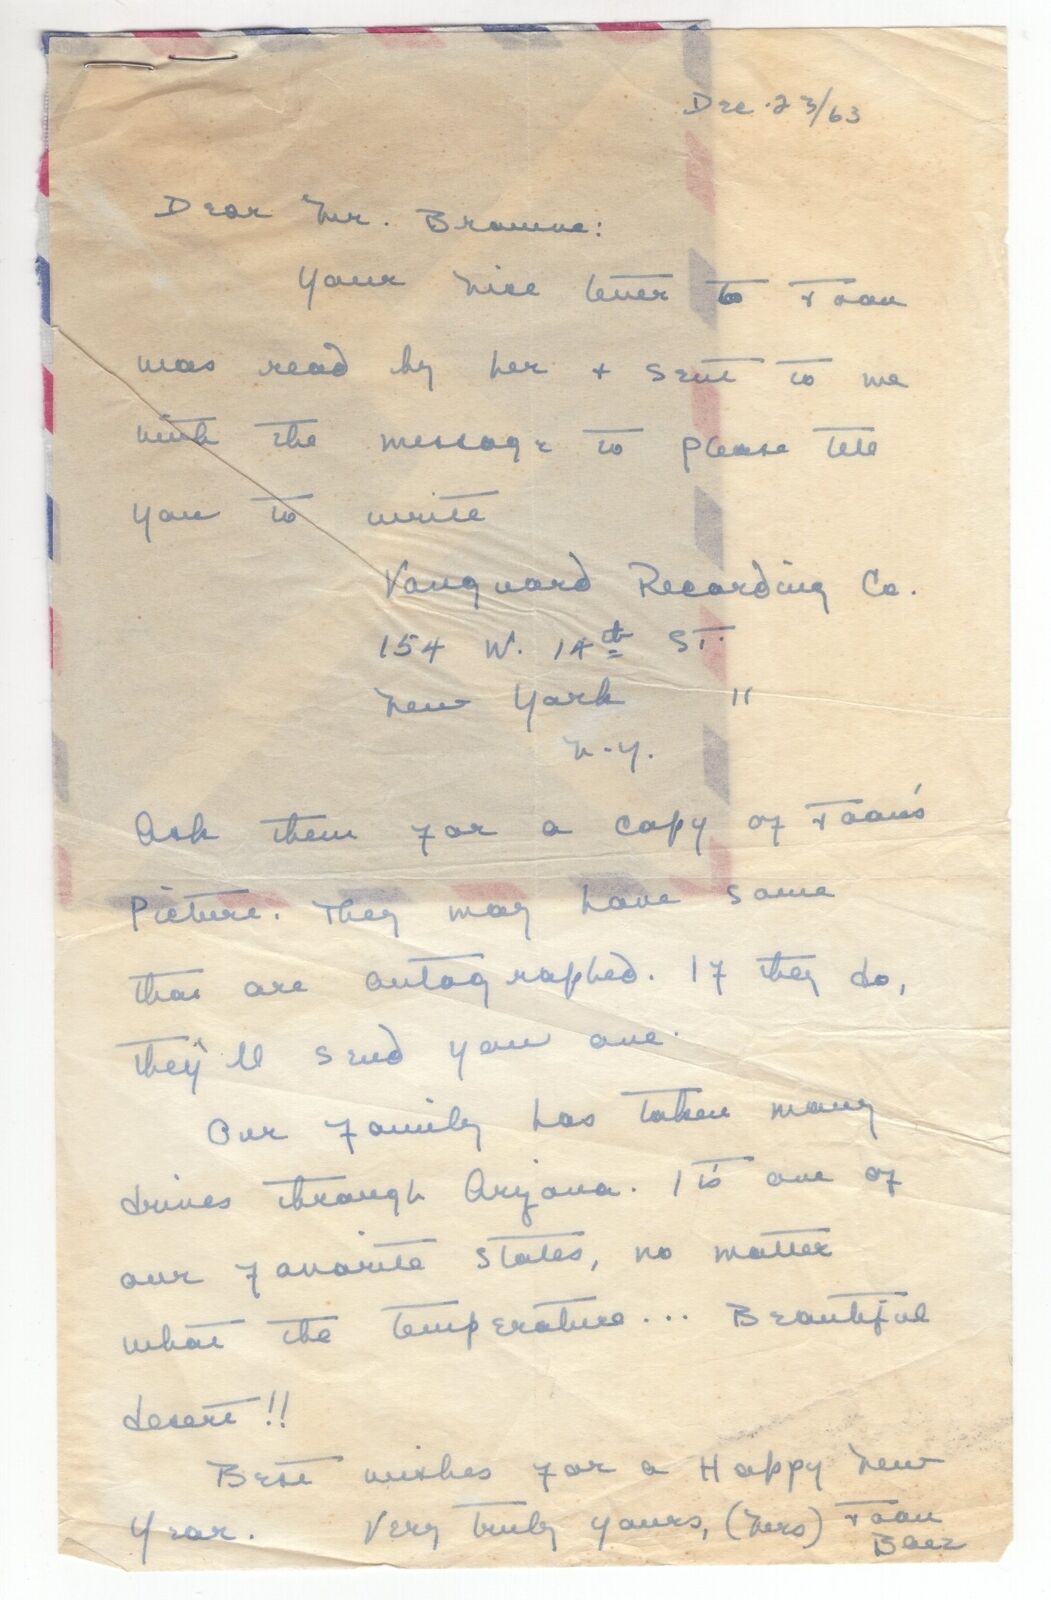 Dec. 23/63
Dear Mr. Browne:
Your nice letter to Joan
was read by her + sent to me
with the message to please tell
you to write
Vanguard Recording Co.
154 W. 14th St.
New York 11
N.Y.
Ask them for a copy of Joan's
picture. They may have some
that are autographed. If they do,
they'll send you one.
Our family has taken many
drives through Arizona. It's one of
our favorite states, no matter
what the temperature... Beautiful
desert!!
Best wishes for a Happy New
Year. Very truly yours, (Mrs) Joan
Baez